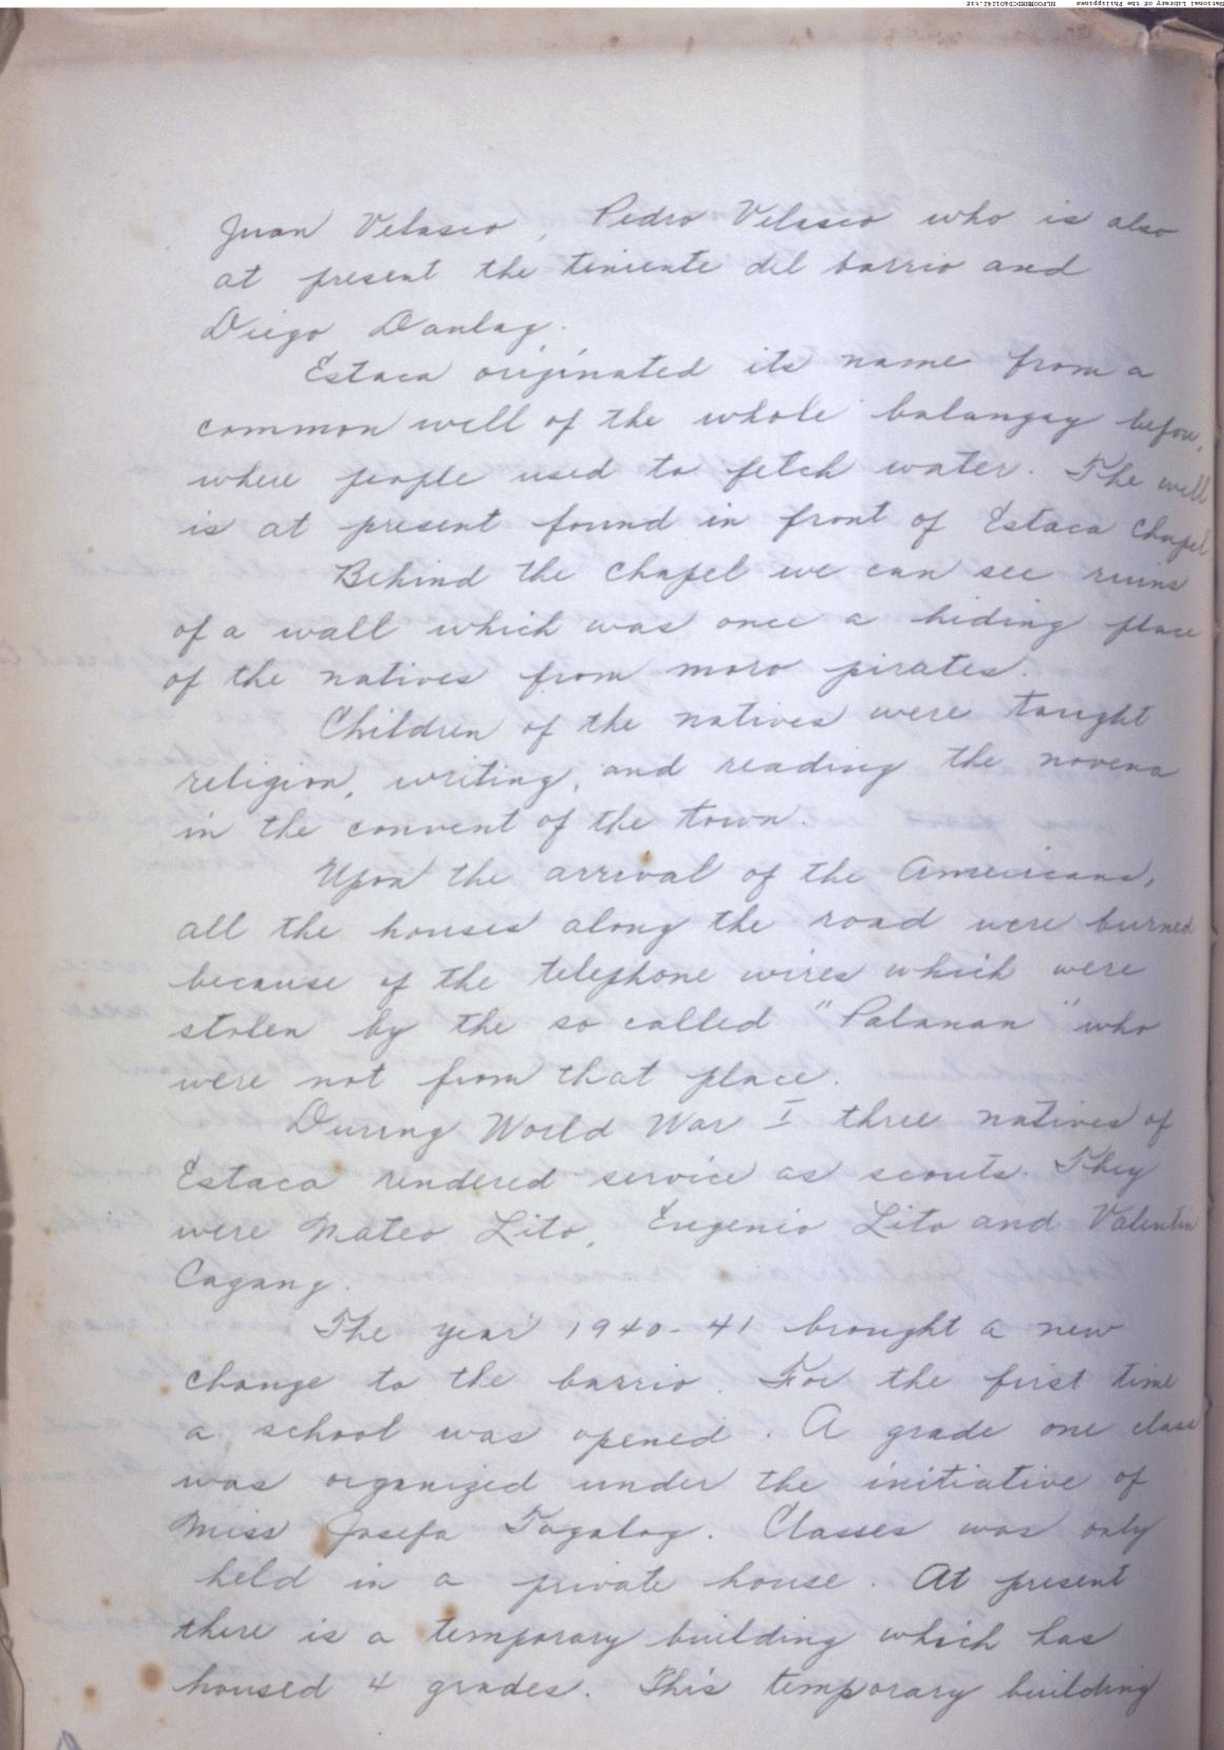 National Library of the Philippines
Juan Velasco, Pedro Velasco who is also
at present the teniente del barrio and
Diego Danlag.
Estaca originated its name from a
common well of the whole balangay before,
where people used to fetch water. The well
is at present found in front of Estaca Chapel
Behind the chapel we can see ruins
of a wall which was once a hiding place
of the natives from moro pirates.
Children of the natives were taught
religion, writing, and reading the novena
in the convent of the town.
Upon the arrival of the Americans,
all the houses along the road were burned
because of the telephone wires which were
stolen by the so called "Palanan" who
were not from that place.
During World War I three natives of
Estaca rendered service as scouts. They
were Mateo Lito, Eugenio Lito and Valentin
Cagang.
The year 1940-41 brought a new
change to the barrio. For the first time
a school was opened. A grade one class
was organized under the initiative of
Miss Josefa Tagalog. Classes was only
held in a private house. At present
there is a temporary building which has
housed 4 grades. This temporary building